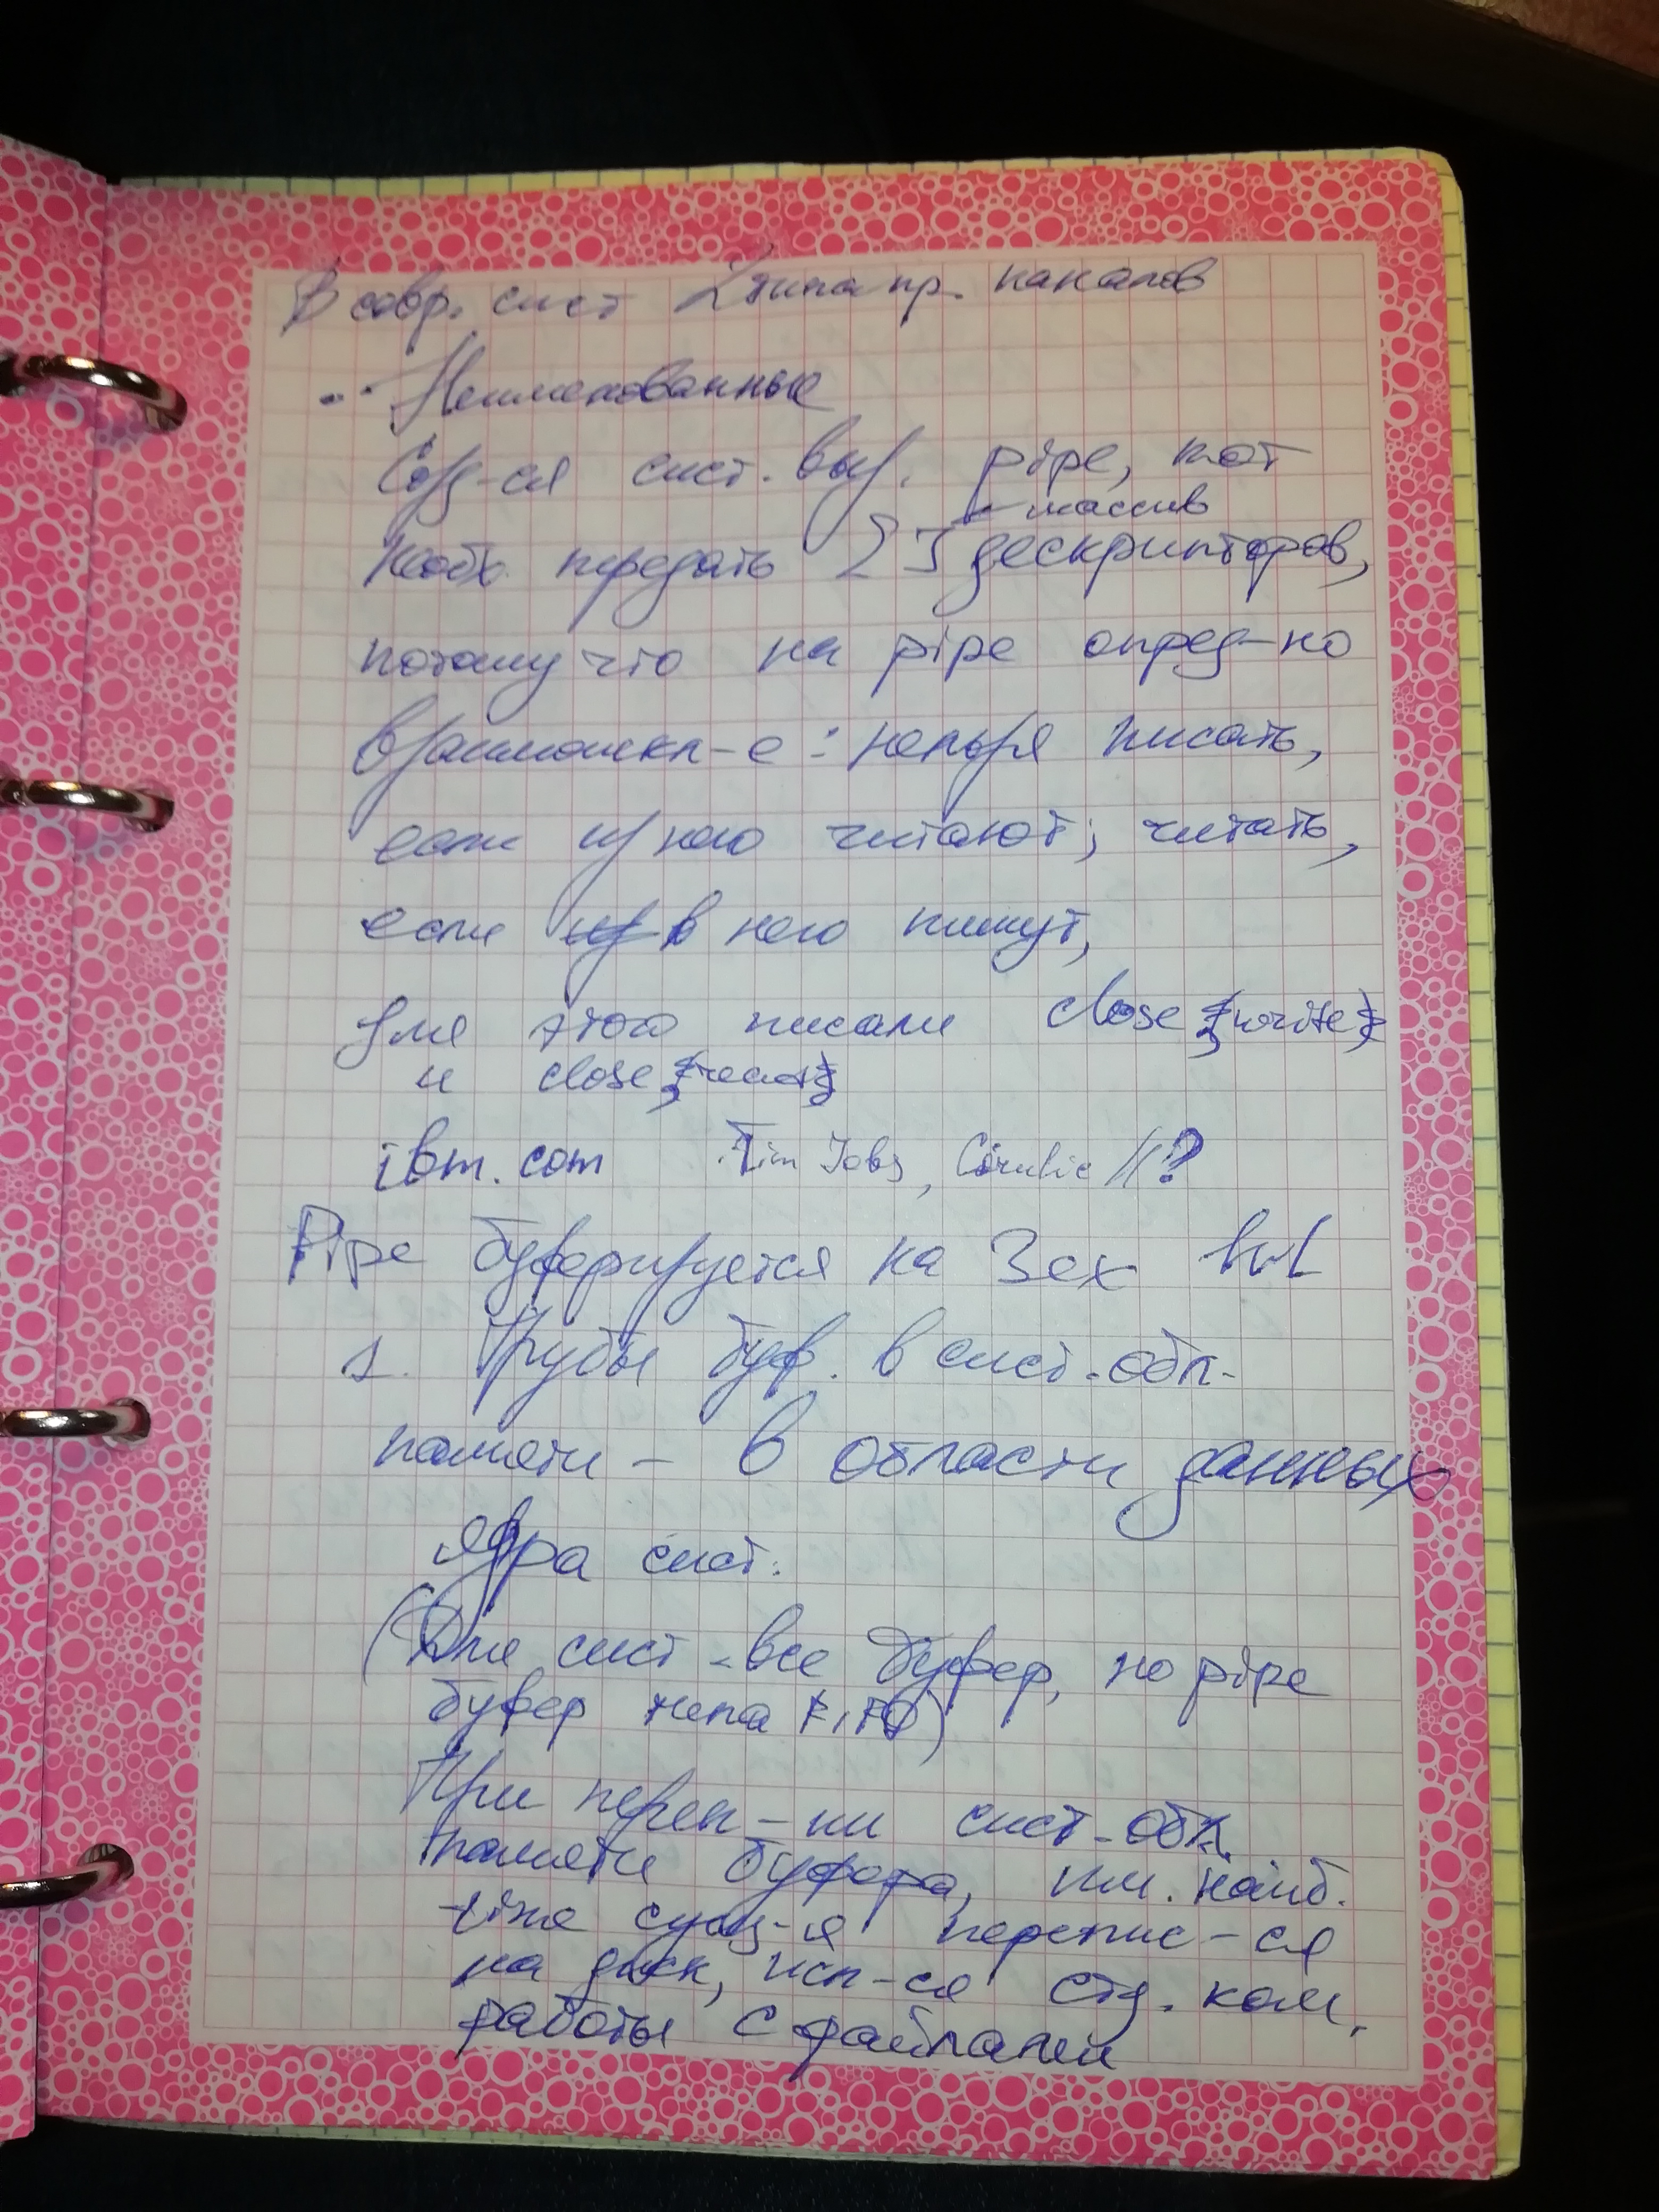 В совр. сист 2 типа пр. каналов
Неименованные
Созд-ся сист. выз. pipe, кот
массив
необх. передать [ ] дескрипторов,
потому что на pipe опред-но
взаимоискл-е: нельзя писать,
если из него читают; читать,
если из в него пишут,
для этого писали close [write]
и close [read]
ibm.com Tim Jobs, //?
Pipe буферизуется на 3ех lvl
1. Трубы буф. в сист. обл.
памяти – в области данных
ядра сист.
(Для сист - все буфер, но pipe
буфер типа FIFO)
При переп-ни сист. обл.
памяти буфера, им. наиб.
t же сущ-я перепис-ся
на диск, исп-ся стд. ком.
работы с файлами